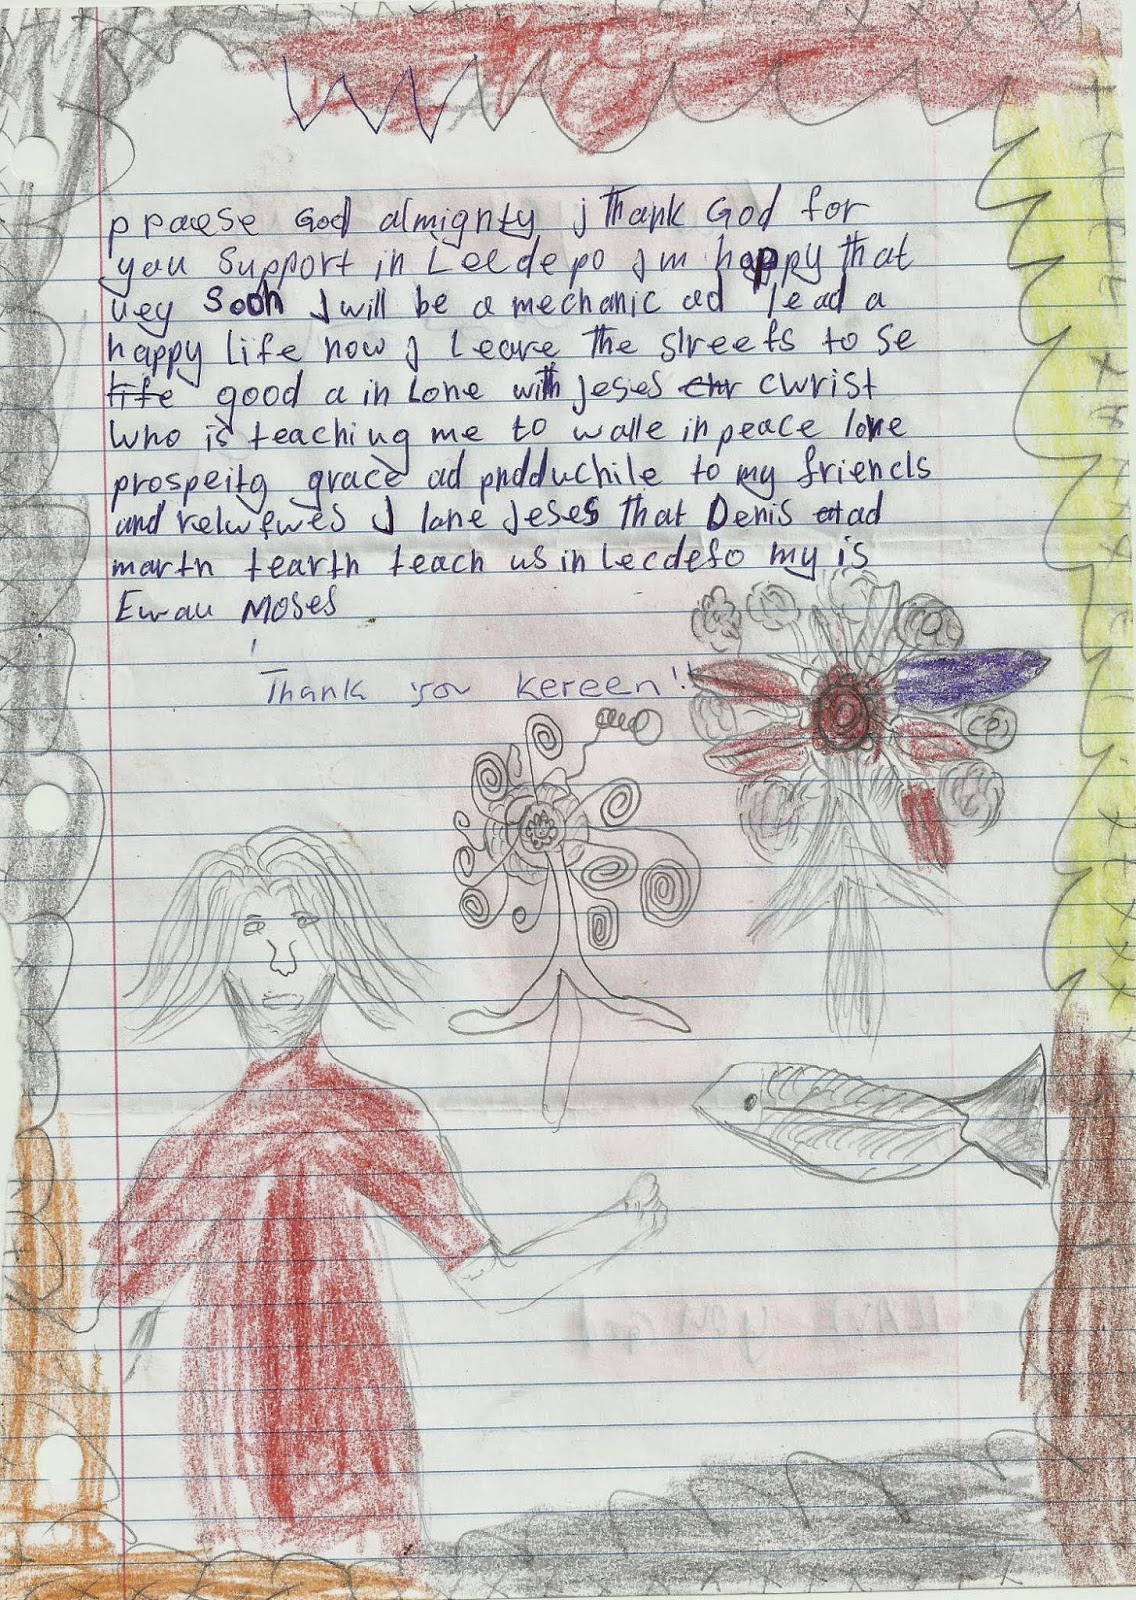 p praese God almignty j Thank God for
you support in Lecdepo Im happy that
vey Soon I will be a mechanic ad lead a
happy life now I Leave the streets to se
life good a in Lone with jeses chr cwrist
Who is teaching me to walle in peace love
prospeitg grace ad to my friends
and I lone jeses that Denis at ad
martn tearth teach us in Lecdefo my is
Ewau Moses
Thank you Kereen!!